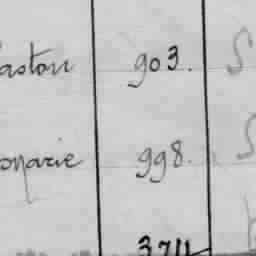 aston 903. S
onarie 998. S
3711